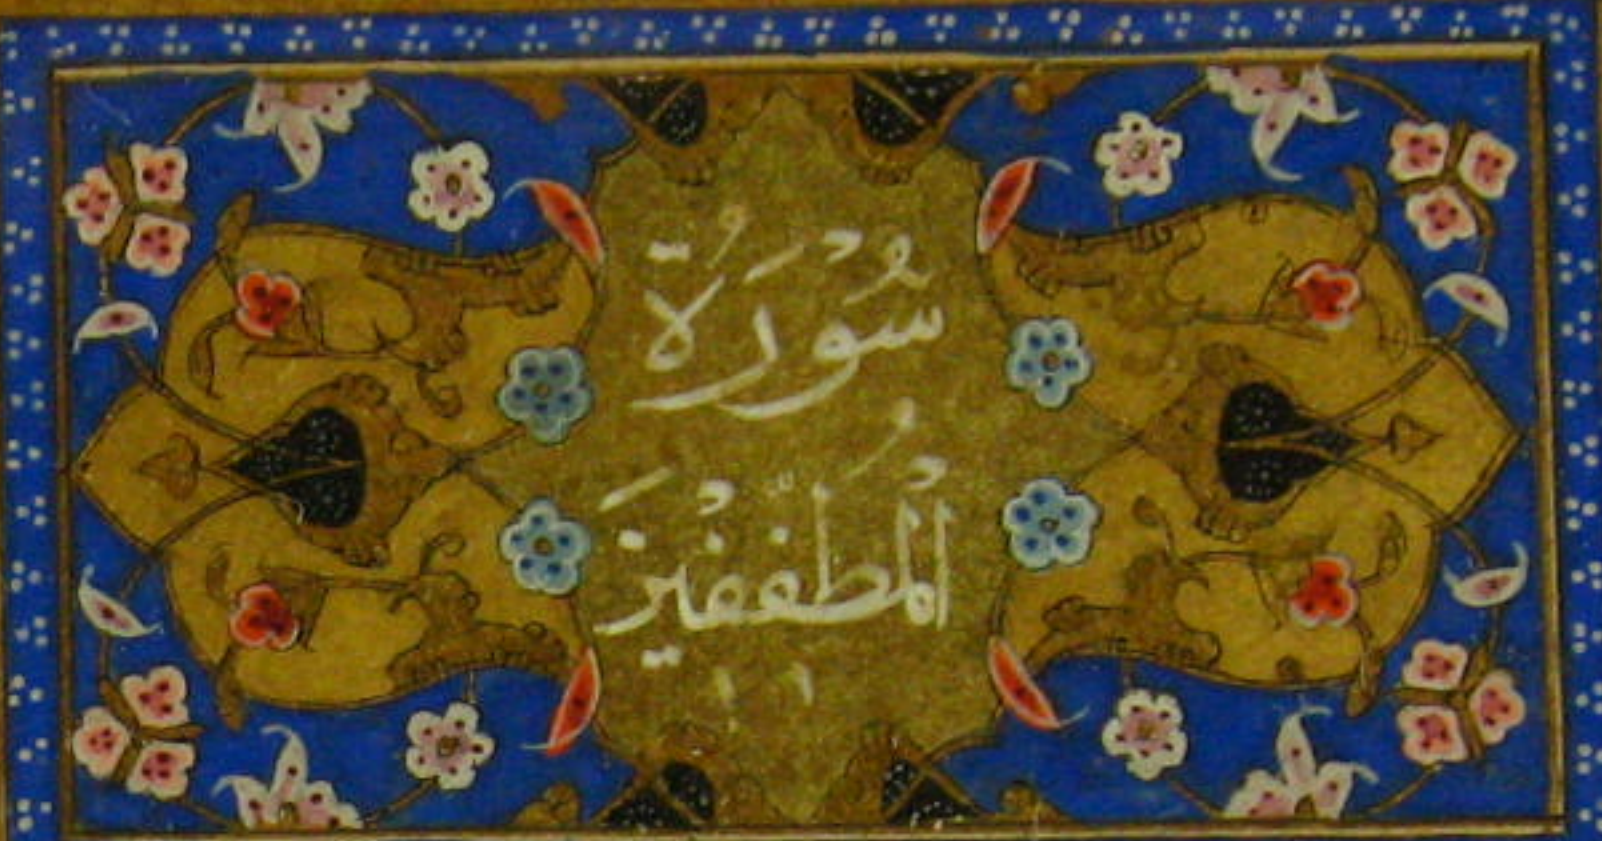 سُوْرَةُ
اَلْمُطَفِّفِيْنَ